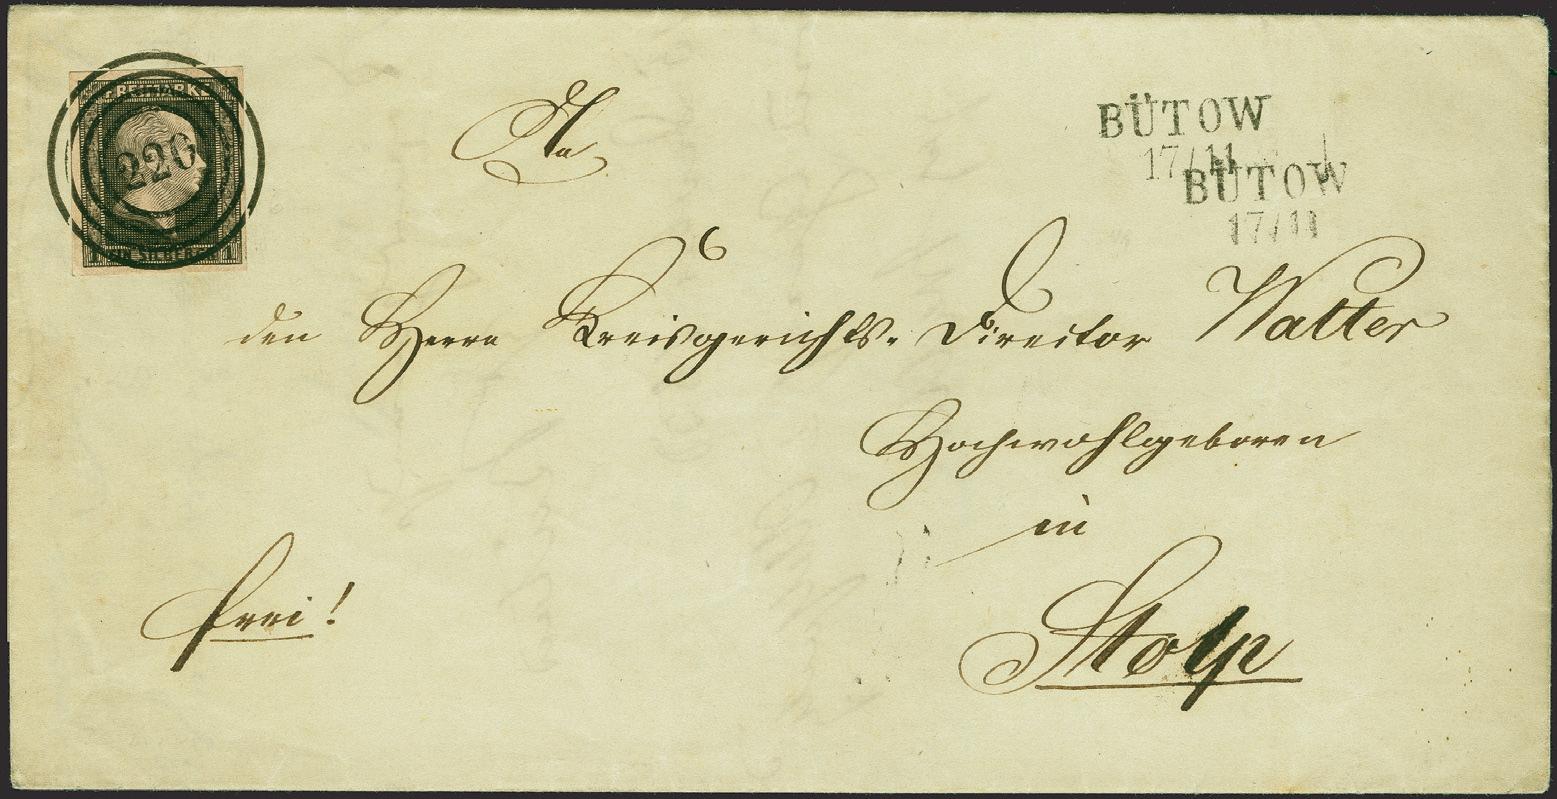 FREIMARKE
220
1 EIN SILBERGR. 1
BÜTOW
17/11
BÜTOW
17/11
An
den Herrn Kreisgerichts-Director Walter
Hochwohlgeboren
in
Stolp
frei!